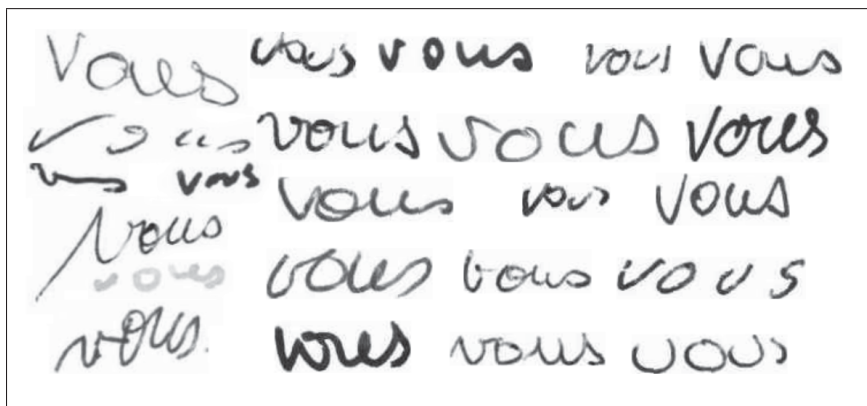 Vous vous vous vous Vous
vous vous vous vous
vous vous vous vous vous
vous
vous vous vous vous
vous. vous vous vous